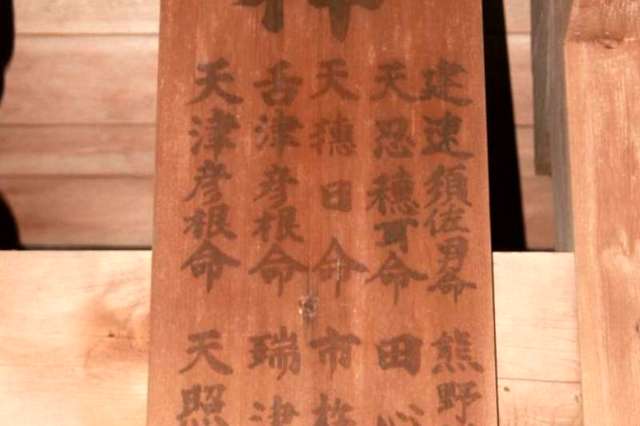 神
建速須佐男命 熊野
天忍穂耳命 田心
天穗日命 市杵
舌津彦根命 瑞津
天津彦根命 天照